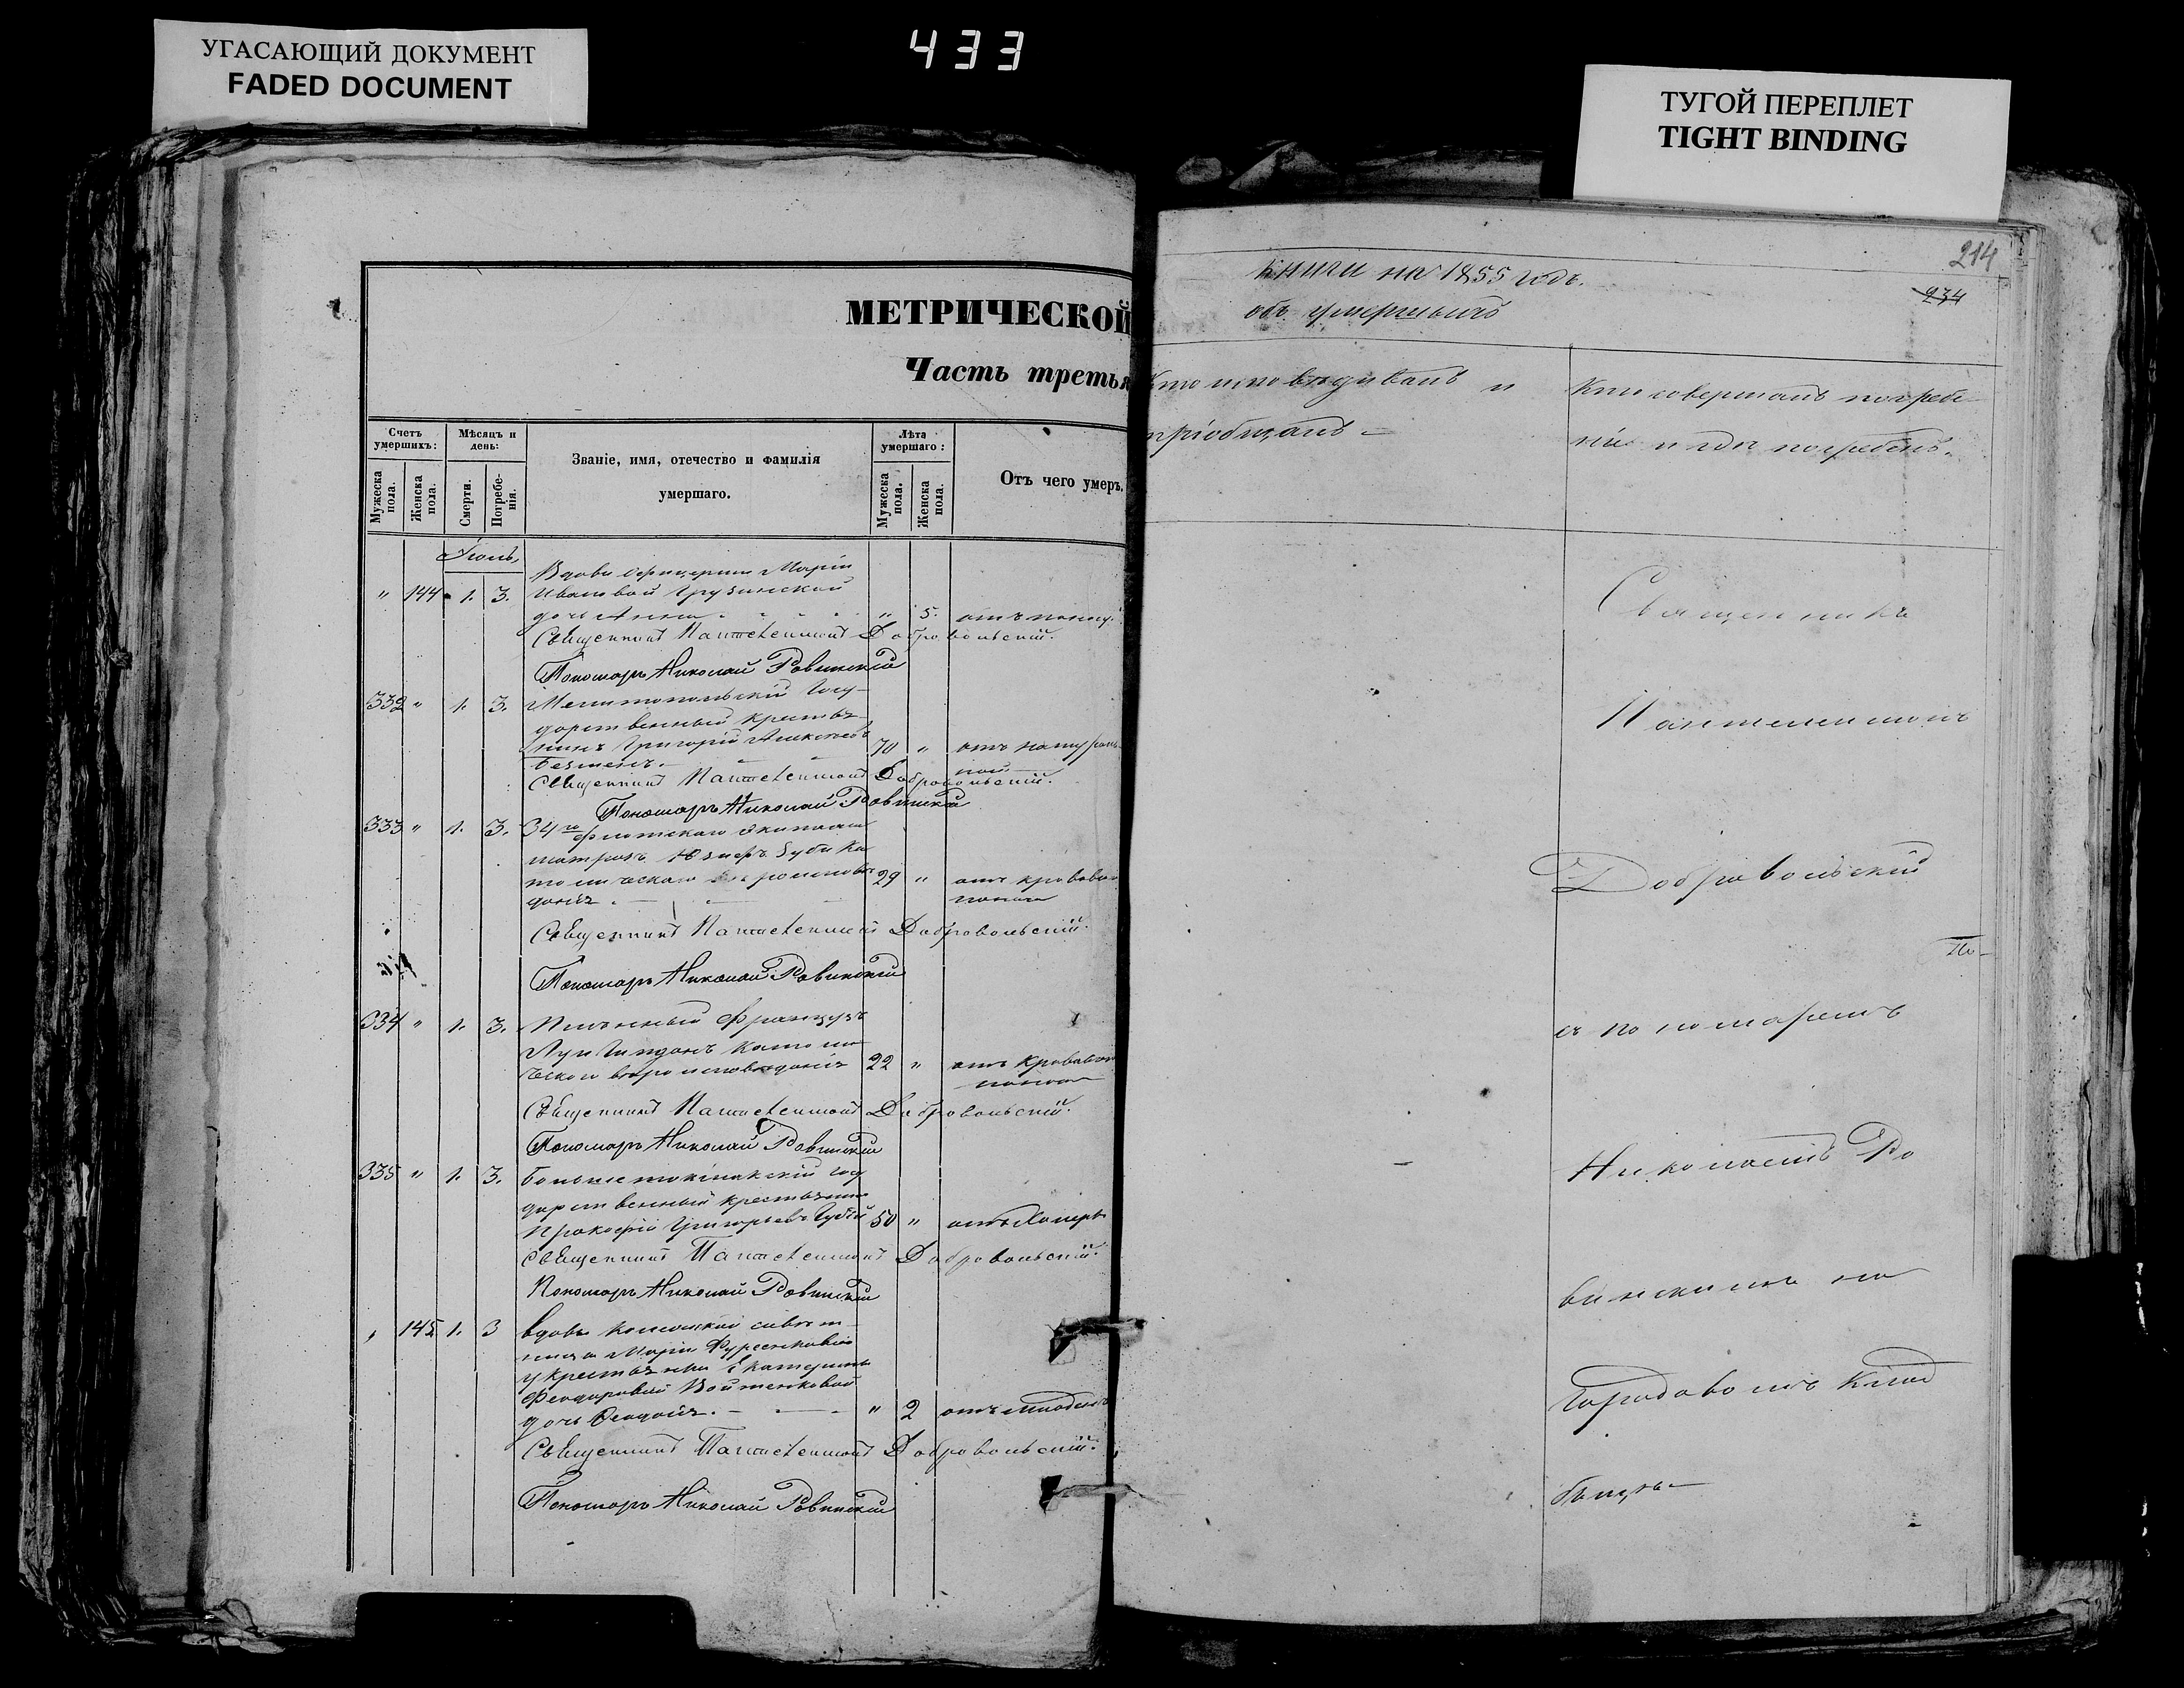 УГАСАЮЩИЙ ДОКУМЕНТ
FADED DOCUMENT
433
ТУГОЙ ПЕРЕПЛЕТ
TIGHT BINDING
МЕТРИЧЕСКОЙ
Часть третья
Счетъ умершихъ:
Мужеска пола.
Женска пола.
Мѣсяцъ и день:
Смерти.
Погребенія.
Званіе, имя, отечество и фамилія
умершаго.
Лѣта умершаго:
Мужеска пола.
Женска пола.
Отъ чего умеръ.
Іюль,
Вдовы Офицерши Маріи
" 144 1. 3. Ивановой Грузинской
дочь Анна " 5. отъ
Священникъ Пантелеимонъ Добровольскій.
Пономарь Николай Ровинскій
332 " 1. 3. Мелитопольскій Госу-
дарственный крестья-
нинъ Григорій Алексѣевъ 70 " отъ натураль-
ной
Священникъ Пантелеимонъ Добровольскій.
Пономарь Николай Ровинскій
333 " 1. 3. 34го Флотскаго экипажа
матрозъ Католическаго вѣроисповѣданія 29 " отъ кроваваго
поноса
Священникъ Пантелеимонъ Добровольскій.
Пономарь Николай Ровинскій
334 " 1. 3. Плѣнный Французъ
Луи Католи-
ческаго вѣроисповѣданія 22 " отъ кроваваго
поноса
Священникъ Пантелеимонъ Добровольскій.
Пономарь Николай Ровинскій
335 " 1. 3. Большетокмакскій госу
дарственный крестьянинъ
Прокофій Григорьевъ 50 " отъ Холеры
Священникъ Пантелеимонъ Добровольскій.
Пономарь Николай Ровинскій
" 145 1. 3 вдовы
Маріи
у крестьянки Екатерины
Феодоровой Войтенковой
дочь Феодосія. " 2 отъ
Священникъ Пантелеимонъ Добровольскій.
Пономарь Николай Ровинскій
214
934
книги на 1855 годъ.
объ умершихъ
Кто исповѣдывалъ и
пріобщалъ
Кто совершалъ погребе-
ніе и гдѣ погребенъ.
Священникъ
Пантелеимонъ
Добровольскій
По-
съ пономаремъ
Николаемъ Ро
винскимъ на
Городовомъ клад
бищѣ